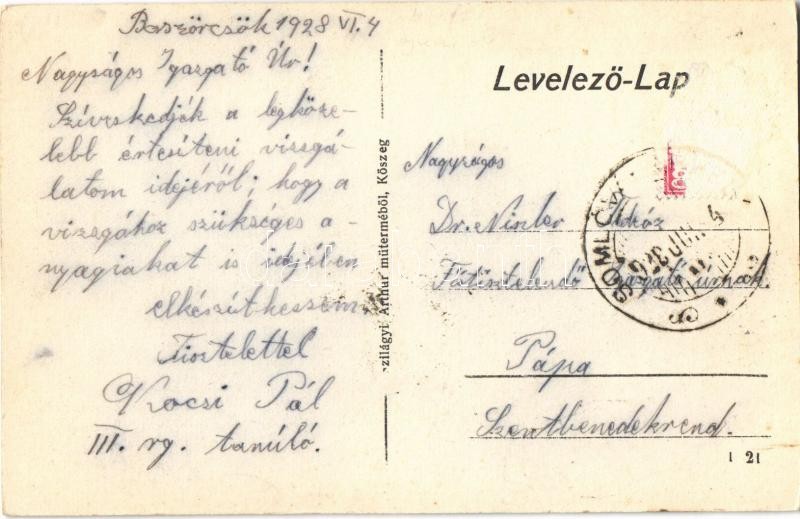 Boszörcsök 1928 VI. 4
Nagyságos Igazgató Úr!
Sziveskedjék a legköze-
lebb értesiteni vizsgá-
latom idejéről; hogy a
vizsgához szükséges a-
nyagiakat is idejében
elkészúthessem
Tisztelettel
Kocsi Pál
III. rg. tanúló.
Szilágyi Arthur műterméből, Kőszeg
Levelező-Lap
Nagyságos
Dr. Niszler
Főtisztelendő igazgató urnak.
Pápa
Szentbenedekrend.
SOMLÓ
928 JUN. 4
1 21